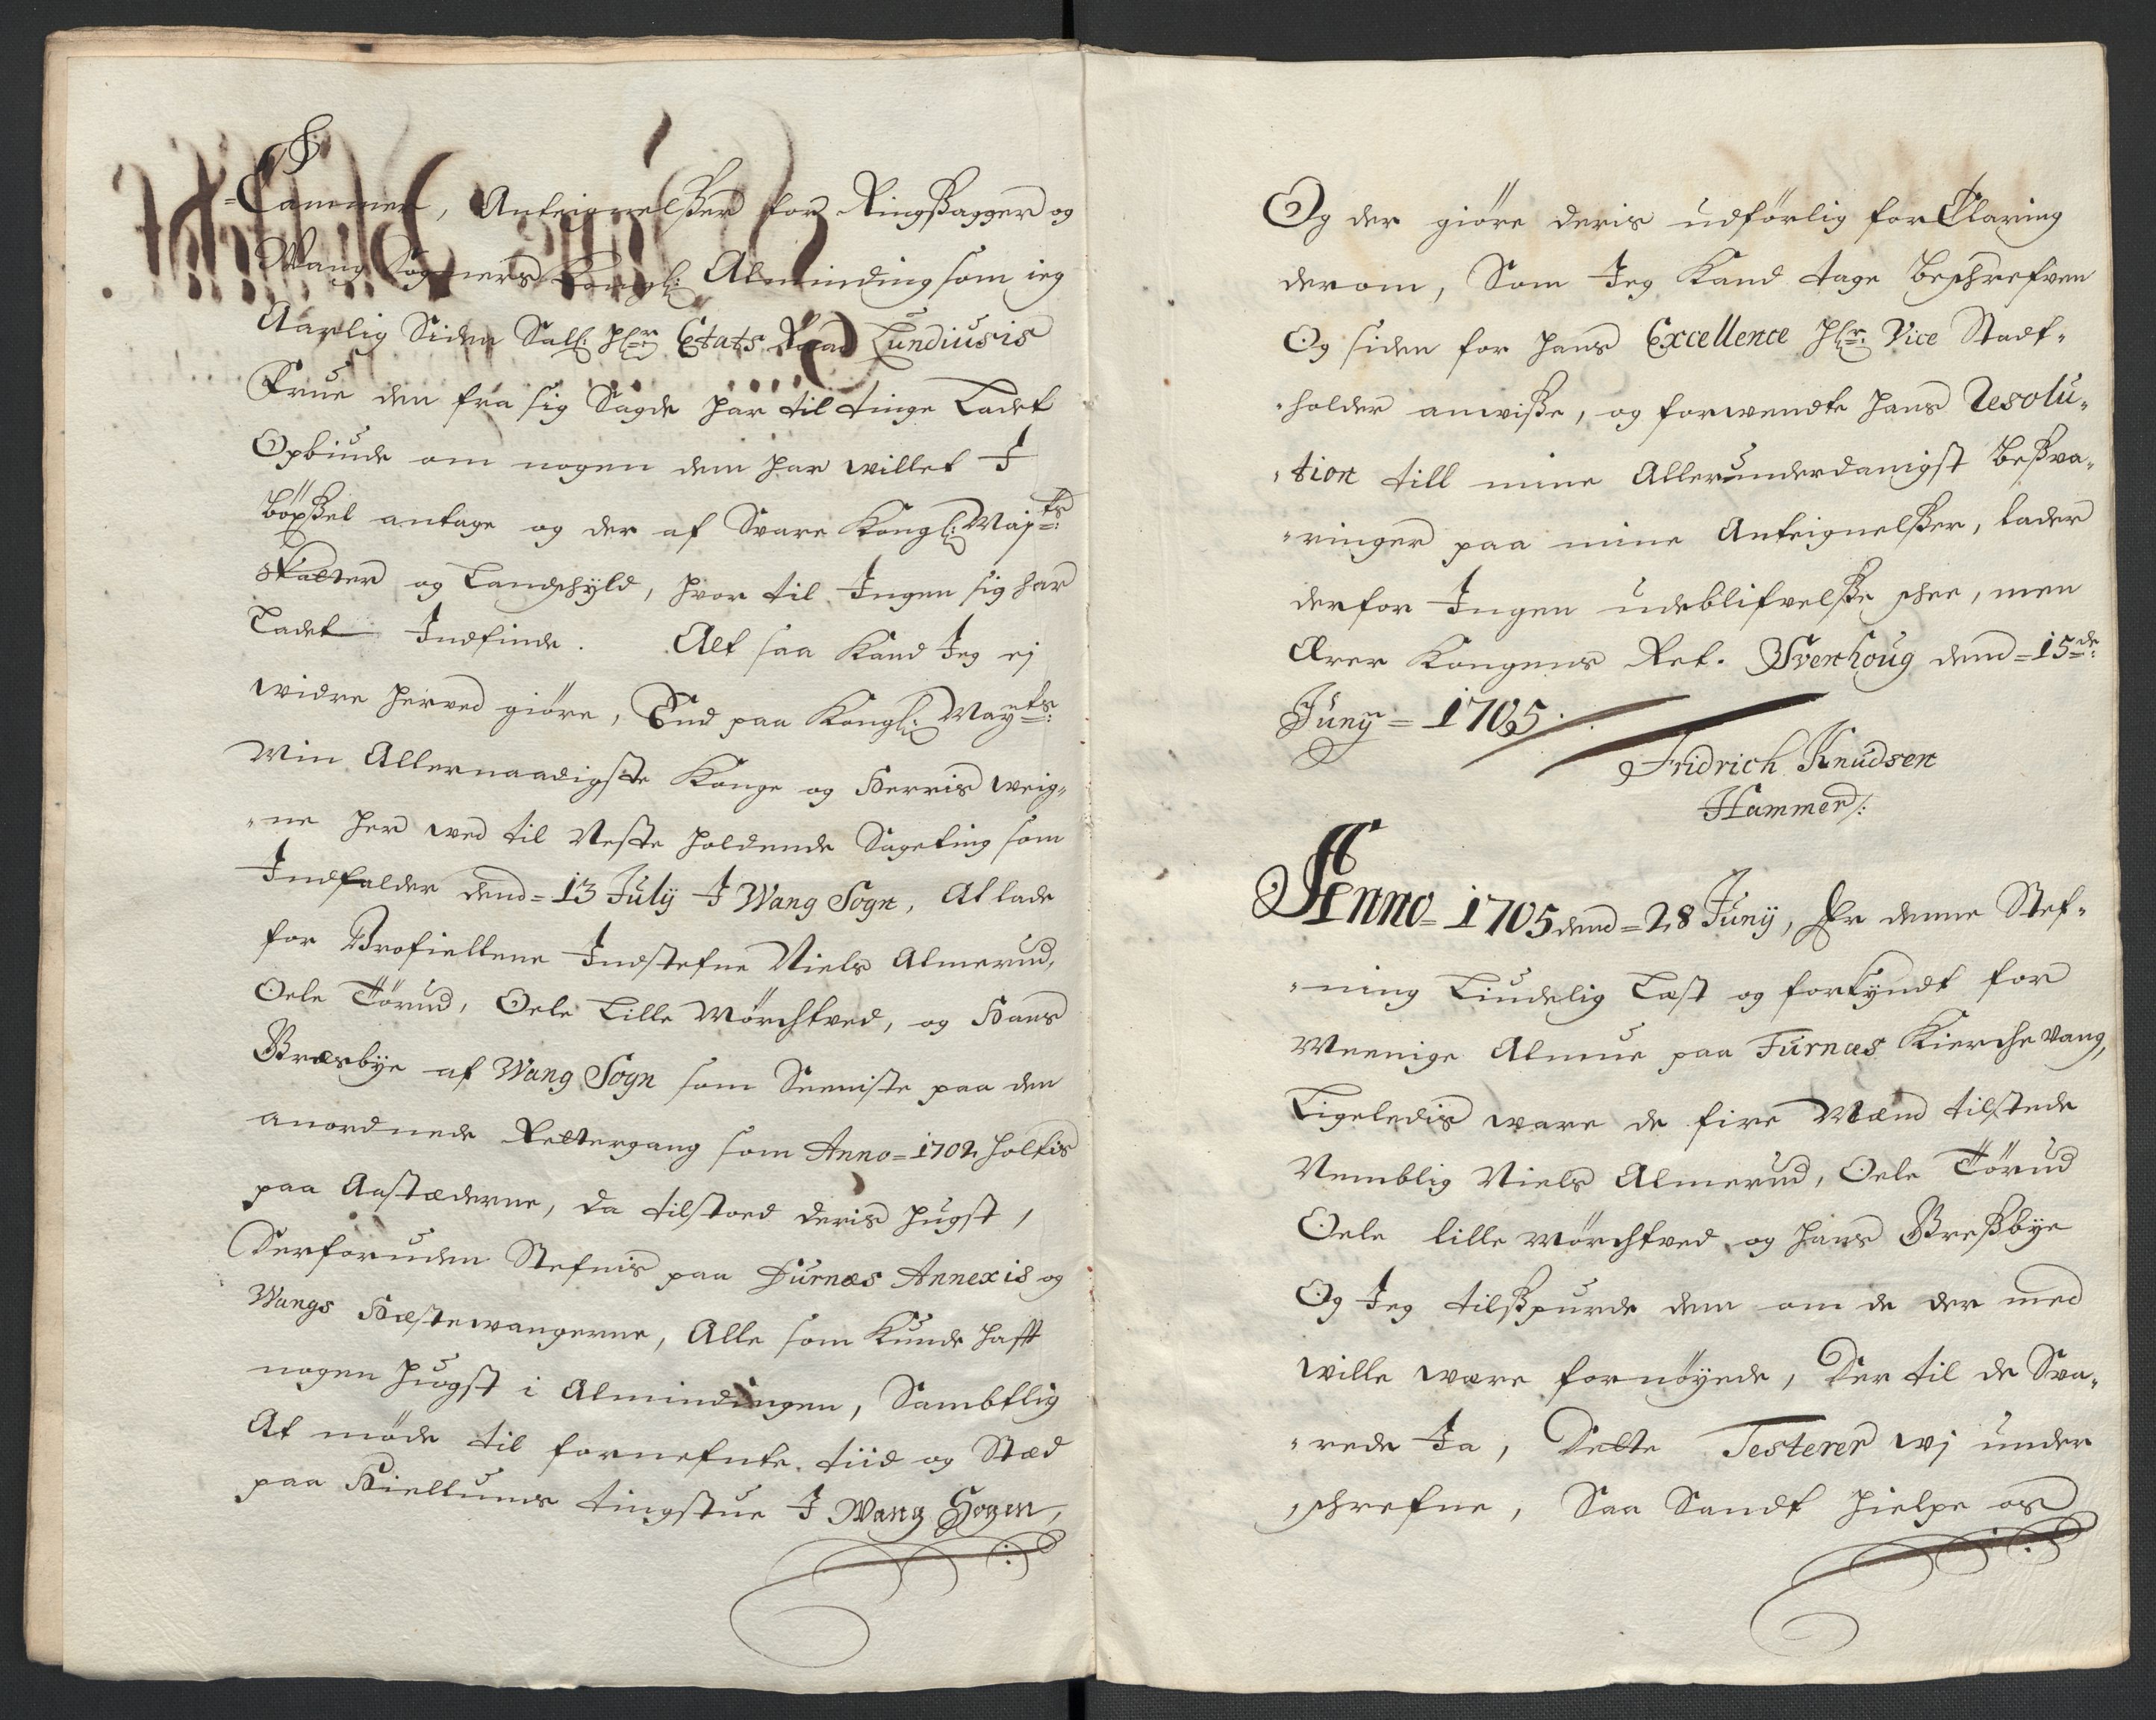 =Cammer, Anteignelßer for Ringßagger og
Wang Sogners Kongl: Alminding som ieg
Aarlig Siden Sall: Hr: Etats Raad Lundiusis
Frue den fra sig Sagde har til tinge Ladet
Opbiude om nogen dem har willet I
böxßel antage og der af Svare Kongl: Majts:
skatter og Landschÿld, hvor til Ingen sig har
Ladet Indfinde. Alt saa Kand Jeg ej
widre herved giöre, End paa Kongl: Mayts:
Min Allernaadigste Konge og Herris weig„
„ne her wed til Neste holdende Sageting som
Indfalder dend=13 Julÿ I Wang Sogn, At lade
for Profiellene Indstefne Niels Almerud,
Oele Törud, Oele Lille Mörchtved, og Hans
Bræsbÿe af Wang Sogn som Seeniste paa den
anordnede Rettergang som Anno=1702 holtis
paa Aastæderne, da tilstoed deris hugst,
Derforuden Stefnis paa Furnæs Annexis og
Wangs Hæstewangerne, Alle som Kunde hafft
nogen hugst i Almindingen, Sambtlig
At möde til fornefnte tiid og Stæd
paa Hiellums tingstue I Wang Sogen,
Og der giöre deris udförlig forClaring
derom, Som Jeg Kand tage beschrefven
Og siden for hans Excellence Hr: Vice Stadt„
„holder anwiße, og forwendte hans Resolu„
„tion till mine Allerunderdanigst beßva„
„ringer paa mine Anteignelßer, lader
derfor Ingen udeblifvelße schee, men
Ærer Kongens Ret. Svenhoug dend=15de:
Junÿ=1705.
Fridrich Knudsen
Hammer/:
Anno=1705 dend=28 Junÿ, Er denne Stef„
„ning Liudelig Læst og forkÿndt for
Meenige Almue paa Furnæs Kierche Vang,
Ligeledis ware de fire Mænd tilstede
Nemblig Niels Almerud, Oele Törud
Oele lille Mörchtved og Hans Breßbÿe
Og Jeg tilßpurde dem om de der med
wille være fornöÿede, Der til de Sva„
„rede Ja, Dette Testerer wj under
„schrefne, Saa Sandt hielpe os